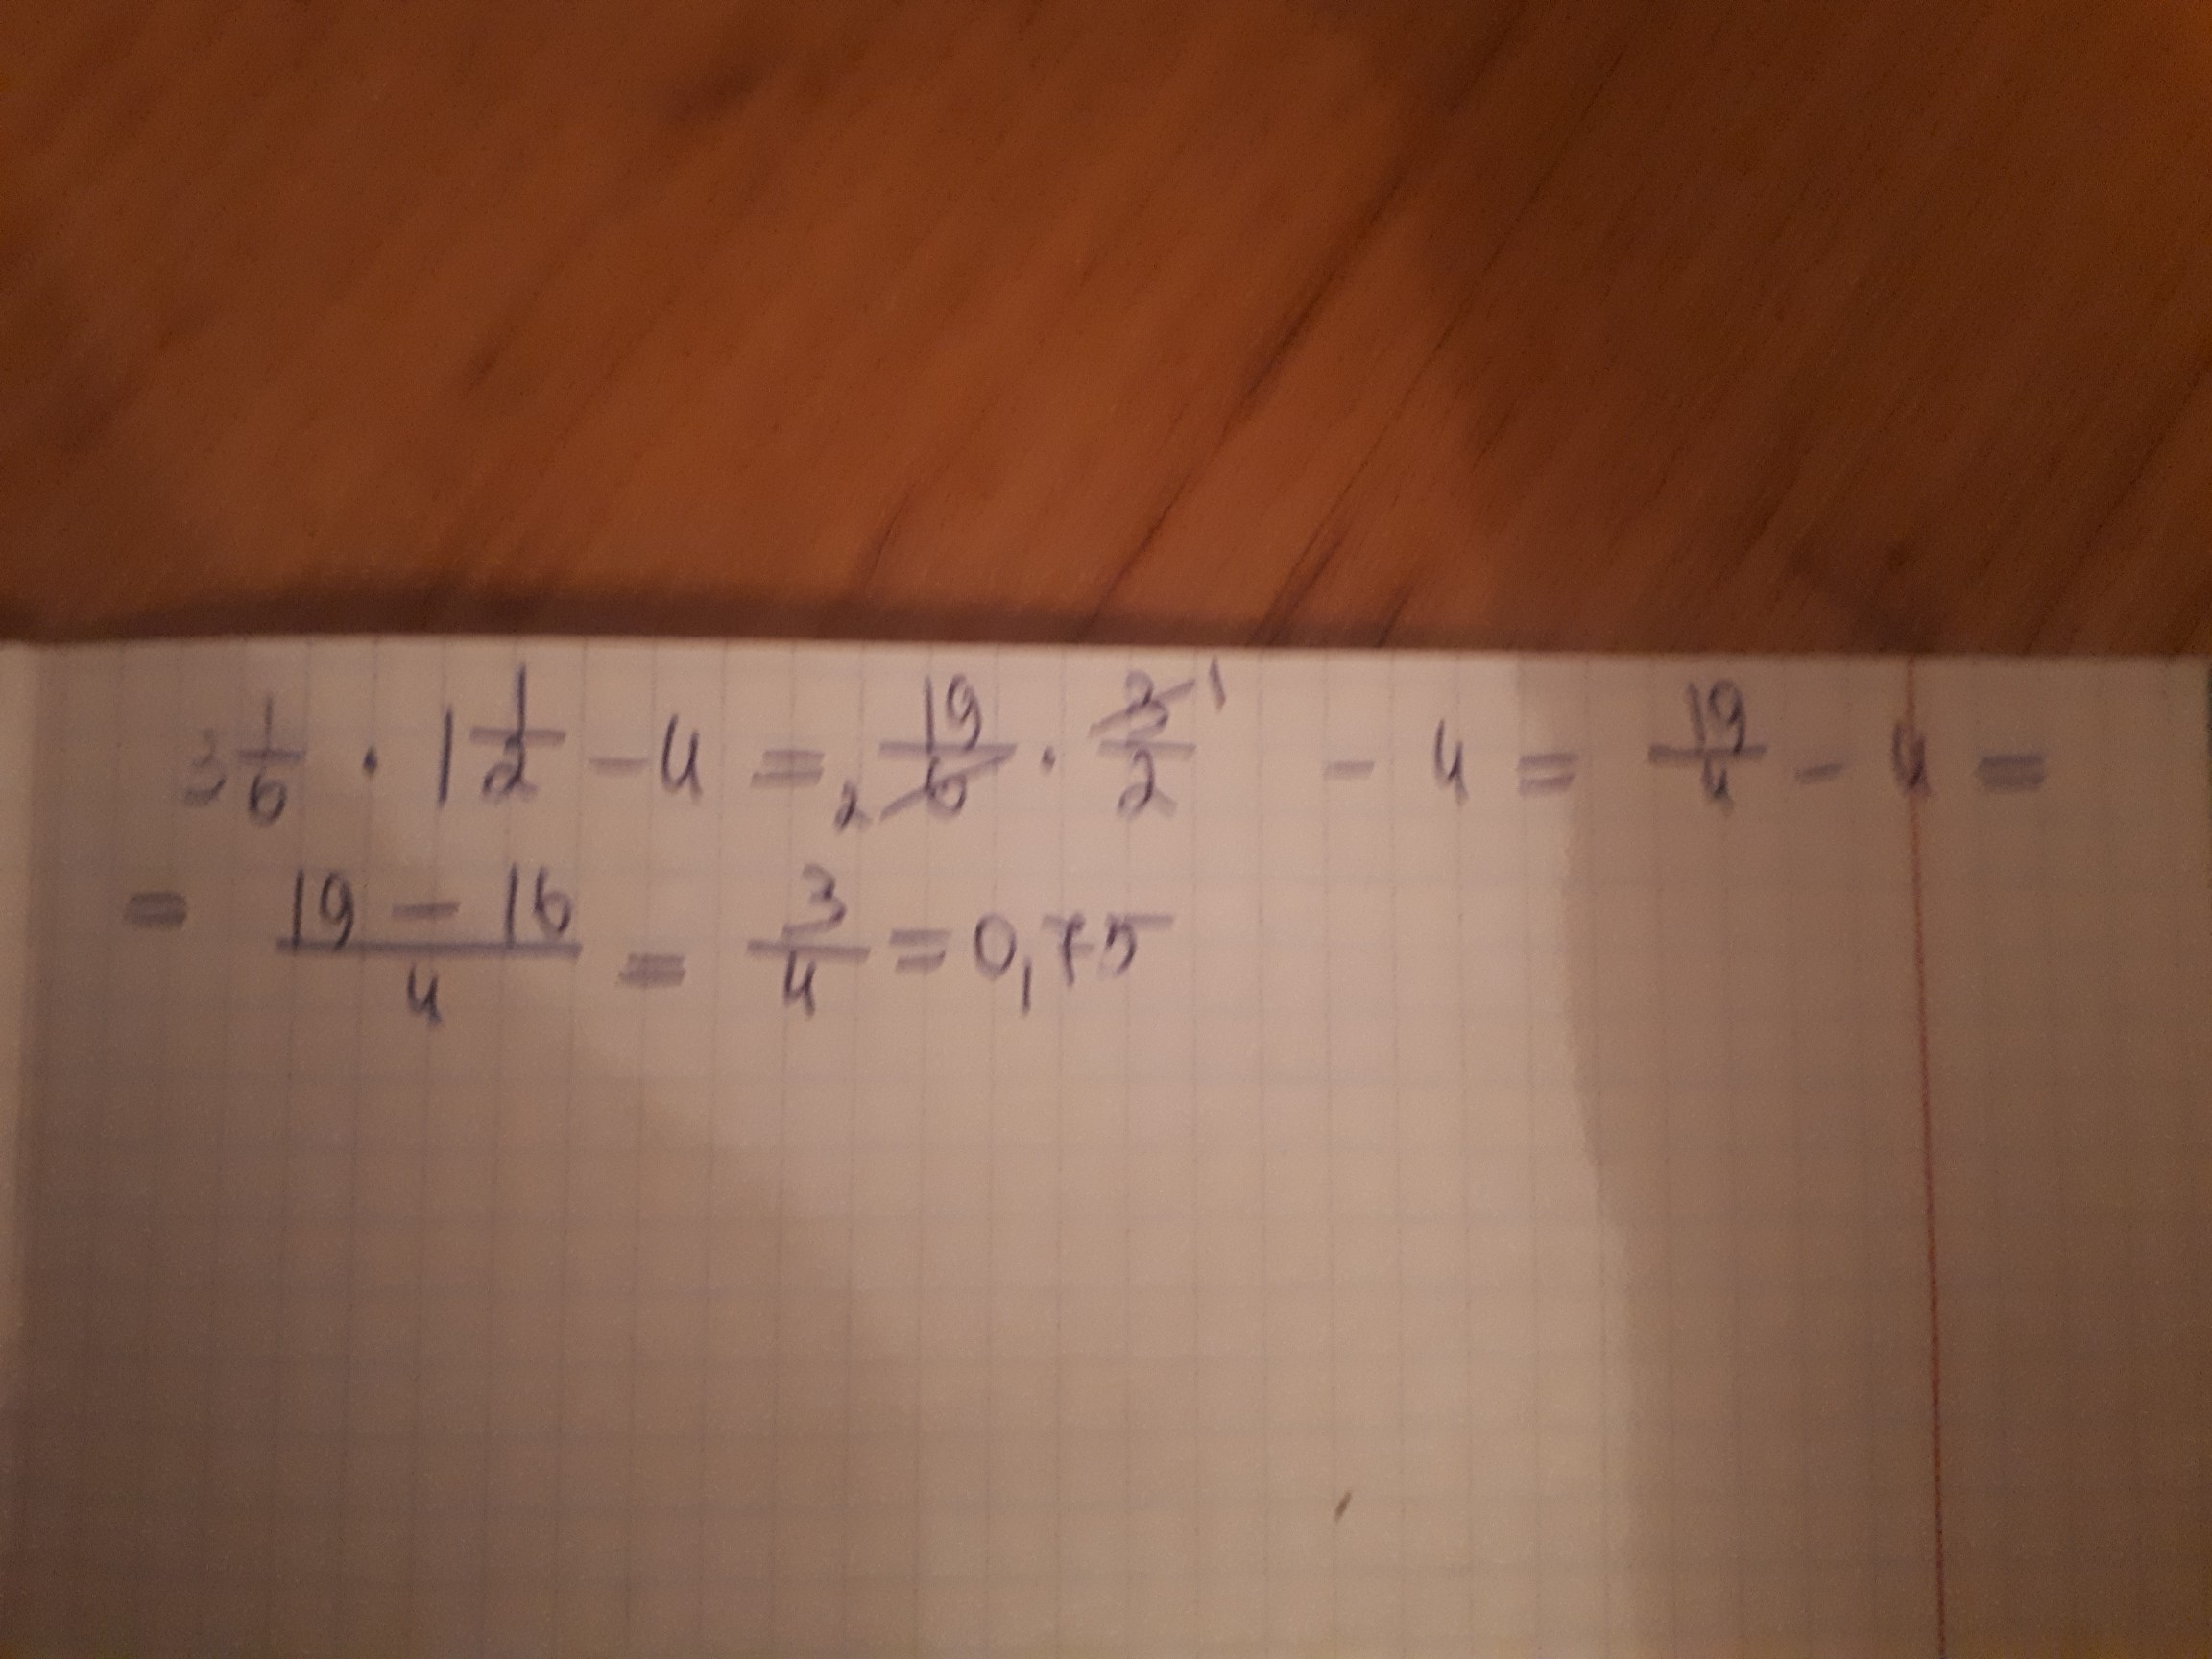 3 1/6 · 1 1/2 − 4 = 2 19/6 · 3/2 1 − 4 = 19/4 − 4 =
= 19 − 16/4 = 3/4 = 0,75